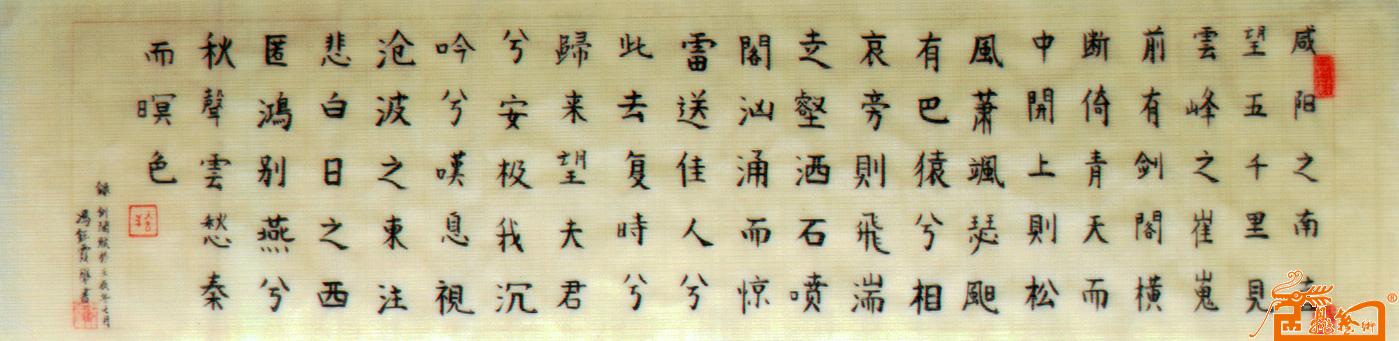 咸阳之南直
望五千里見
雲峰之崔嵬
前有劍閣橫
断倚青天而
中開上則松
風萧颯瑟䬍
有巴猿兮相
哀旁則飛湍
走壑洒石喷
閣汹涌而惊
雷送佳人兮
此去复時兮
歸来望夫君
兮安极我沉
吟兮嘆息視
沧波之東注
悲白日之西
匿鴻别燕兮
秋聲雲愁秦
而暝色
錄剑閣赋於壬辰年七月
馮鈺霞學書